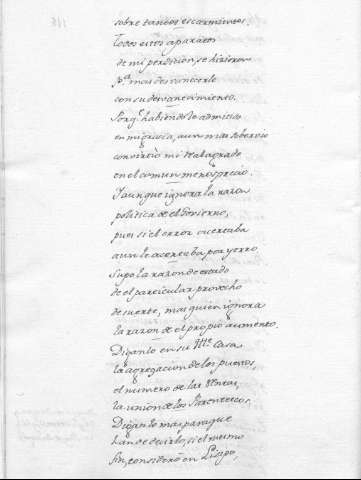 sobre tantos escarmientos.
Todos estos aparatos
de mi perdicion, se hizieron
p.ª mas desvanecerle
con su desvanecimiento.
Porq. habiendole admitido
en mi gracia, aun mas sobervio
convirtiò mi Real agrado
en el comun menosprecio.
Y aunque ignora la razon
politica de el Govierno,
pues si el error acertaba
aun lo acertaba por yerro
Supo la razon de estado
de el particular provecho
de suerte, mas quien ignora
la razon de el propio aumento.
Diganlo en su Ill.ª Casa
la agregacion de los puestos,
el numero de las Rentas,
la union de los Parentescos,
Diganlo mas para que
han de decirlo, si el mesmo
fin, considerò en